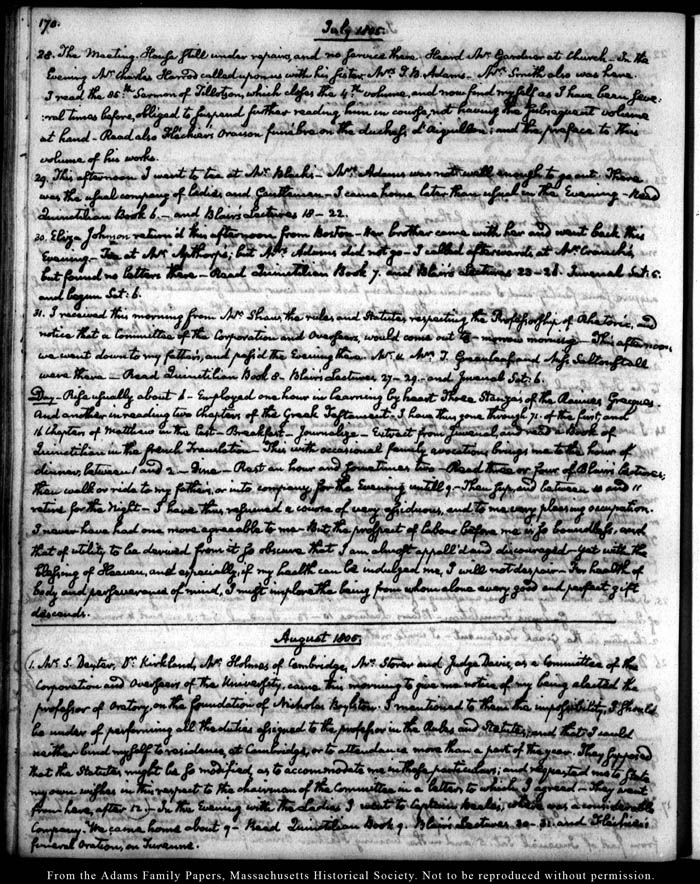 170.
July 1805.
28. The Meeting-House still under repairs, and no service there. Heard Mr. Gardner at Church - In the
Evening Mr. Charles Harrod called upon us with his sister Mrs. T. B. Adams - Mr. Smith also was here.
I read the 85th Sermon of Tillotson, which closes the 4th volume, and now find myself as I have been seve-
-ral times before, obliged to suspend further reading him in course, not having the subsequent volume
at hand - Read also Flechier's Oraison funebre on the duchess d'Aiguillon; and the preface to this
volume of his works.
29. This afternoon I went to tea at Mr. Black's - Mrs. Adams was not well enough to go out. There
was the usual company of Ladies and Gentlemen - I came home later than usual in the Evening - Read
Quinctilian Book 6. - and Blair's Lectures 18-22.
30. Eliza Johnson return'd this afternoon from Boston - Her brother came with her and went back this
Evening - Tea at Mr. Apthorp's; but Mrs. Adams did not go - I called afterwards at Mr. Cranch's,
but found no letters there - Read Quinctilian Book 7. and Blair's Lectures 23-26. Juvenal Sat: 5.
and begun Sat: 6.
31. I received this morning from Mr. Shaw, the rules and Statutes, respecting the Professorship of Rhetoric, and
notice that a Committee of the Corporation and Overseers, would come out to-morrow morning - This afternoon
we went down to my father's, and pass'd the Evening there. Mr. & Mrs. T. Greenleaf and Miss Saltonstall
were there - Read Quinctilian Book 8 - Blair's Lectures 27-29. and Juvenal Sat: 6.
Day - Rise usually about 6 - Employed one hour in learning by heart Three Stanzas of the Racines Grecques
And another in reading two Chapters of the Greek Testament; I have thus gone through 71. of the first, and
16 Chapters of Matthew in the last - Breakfast - Journalize - Extract from Juvenal, and read a Book of
Quinctilian in the french Translation - This with occasional family avocations, brings me to the hour of
dinner, between 1 and 2 - Dine - Rest an hour and sometimes two - Read three or four of Blair's Lectures;
then walk or ride to my father's, or into company, for the Evening untill 9 - Then sup, and between 10 and 11
retire for the Night - I have thus resumed a course of very assiduous, and to me very pleasing occupation.
I never have had one more agreeable to me - But the prospect of labour before me is so boundless, and
that of utility to be derived from it so obscure that I am almost appall'd and discouraged - Yet with the
blessing of Heaven, and especially, if my health can be indulged me, I will not despair - For health of
body and perseverance of mind, I must implore the being from whom alone every good and perfect gift
descends.
August 1805.
1. Mr. S. Dexter, Dr. Kirkland, Mr. Holmes of Cambridge, Mr. Storer and Judge Davis, as a Committee of the
Corporation and Overseers of the University, came this morning to give me notice, of my being elected the
professor of Oratory, on the foundation of Nicholas Boylston. I mentioned to them the impossibility, I should
be under of performing all the duties assigned to the professor in the Rules and Statutes; and that I could
neither bind myself to residence, at Cambridge, or to attendance more than a part of the year. They supposed
that the Statutes might be so modified, as to accommodate me in these particulars; and requested me to state
my own wishes in this respect to the chairman of the Committee in a letter; to which, I agreed - They went
from here, after 12. - In the Evening with the Ladies I went to Captain Beale's, where was a considerable
Company. We came home about 9 - Read Quinctilian Book 9. Blair's Lectures 30-31. and Flechier's
funeral Oration, on Turenne.
From the Adams Family Papers, Massachusetts Historical Society. Not to be reproduced without permission.